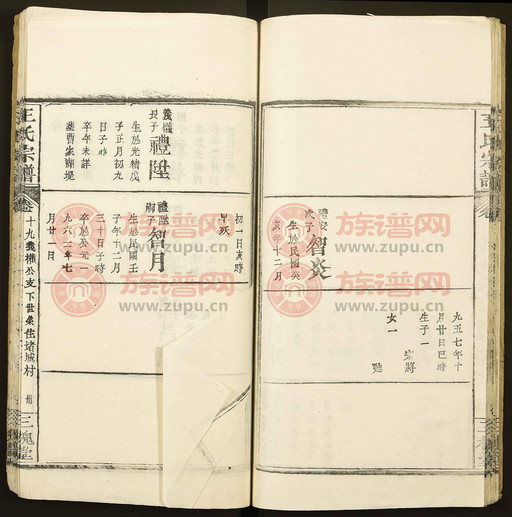 礼安
次子智炎
生於民國癸
亥年十二月
初一日亥時
早殀
九五七年十
月廿日巳時
生子一
宗將
女一
義權
長子禮陞
生於光緒戊
子正月初九
日子時
卒年未詳
葬曹家蹄堤
禮陞
嗣子智月
生於民國壬
子年十二月
三十日子時
卒於公元一
九六二年七
月廿一日
王氏宗譜
卷
十九義權公支下世系住堵城村
三槐堂
族谱网
www.zupu.cn
族谱网
www.zupu.cn
族谱网
www.zupu.cn
族谱网
www.zupu.cn